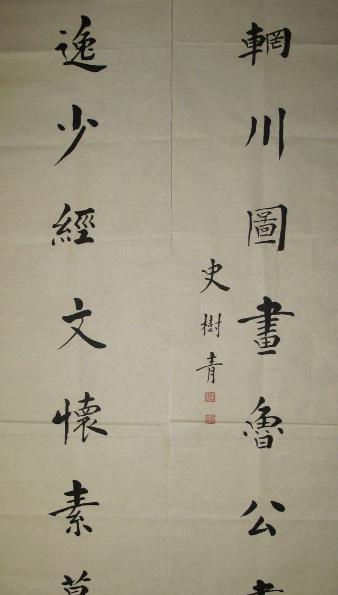 輞川圖畫魯公
史樹青
逸少經文懷素